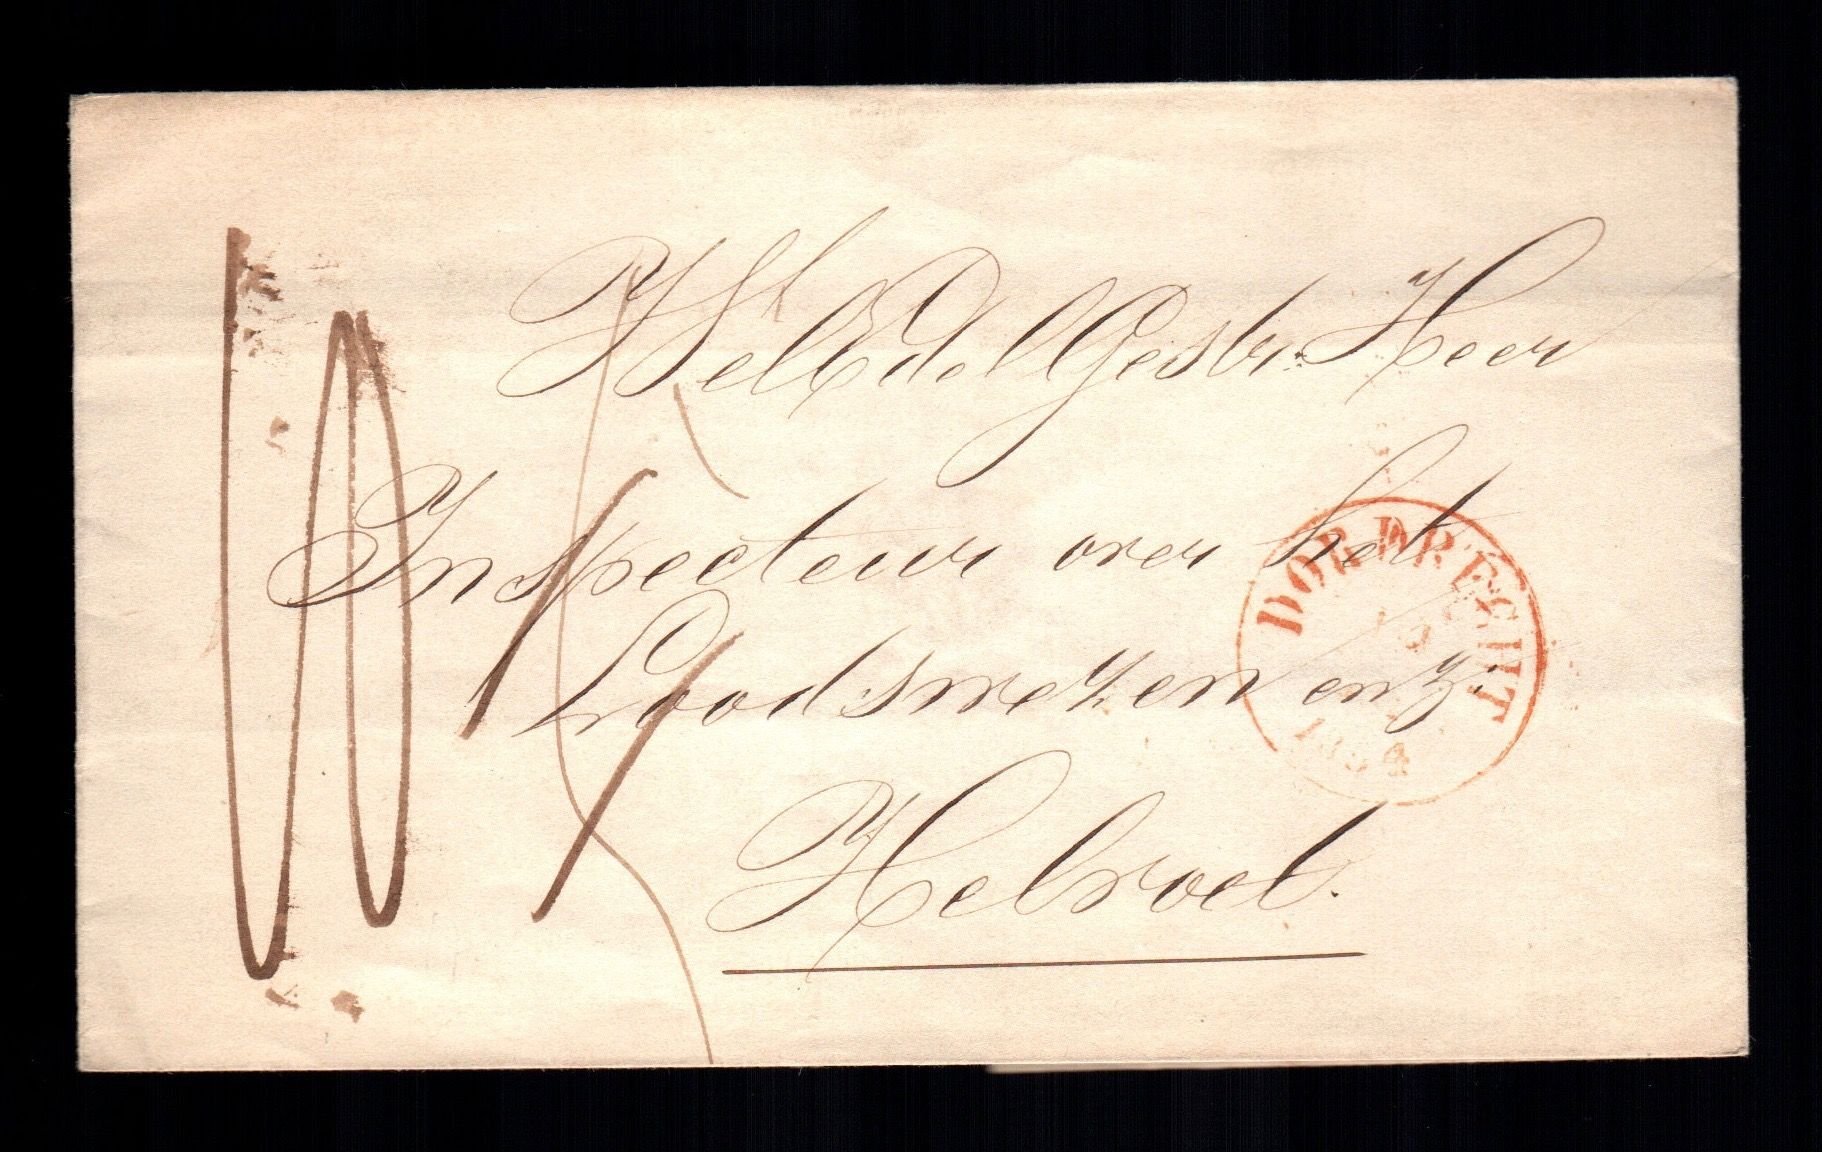 WelEdelGestr: Heer
Inspecteur over het
Loodswezen enz.
Helvoet.
DORDRECHT
1854